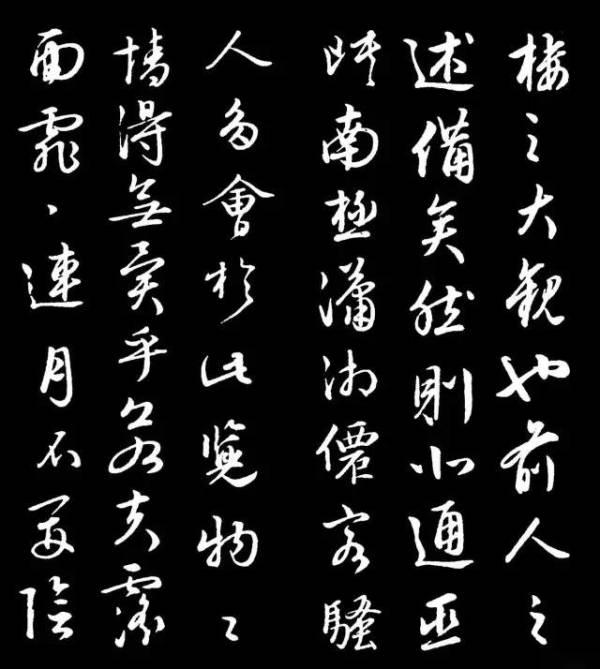 樓之大觀也前人之
述備矣然則北通巫
峽南極瀟湘僊客騷
人多會於此覽物之
情得無異乎若夫霪
雨霏々連月不開陰